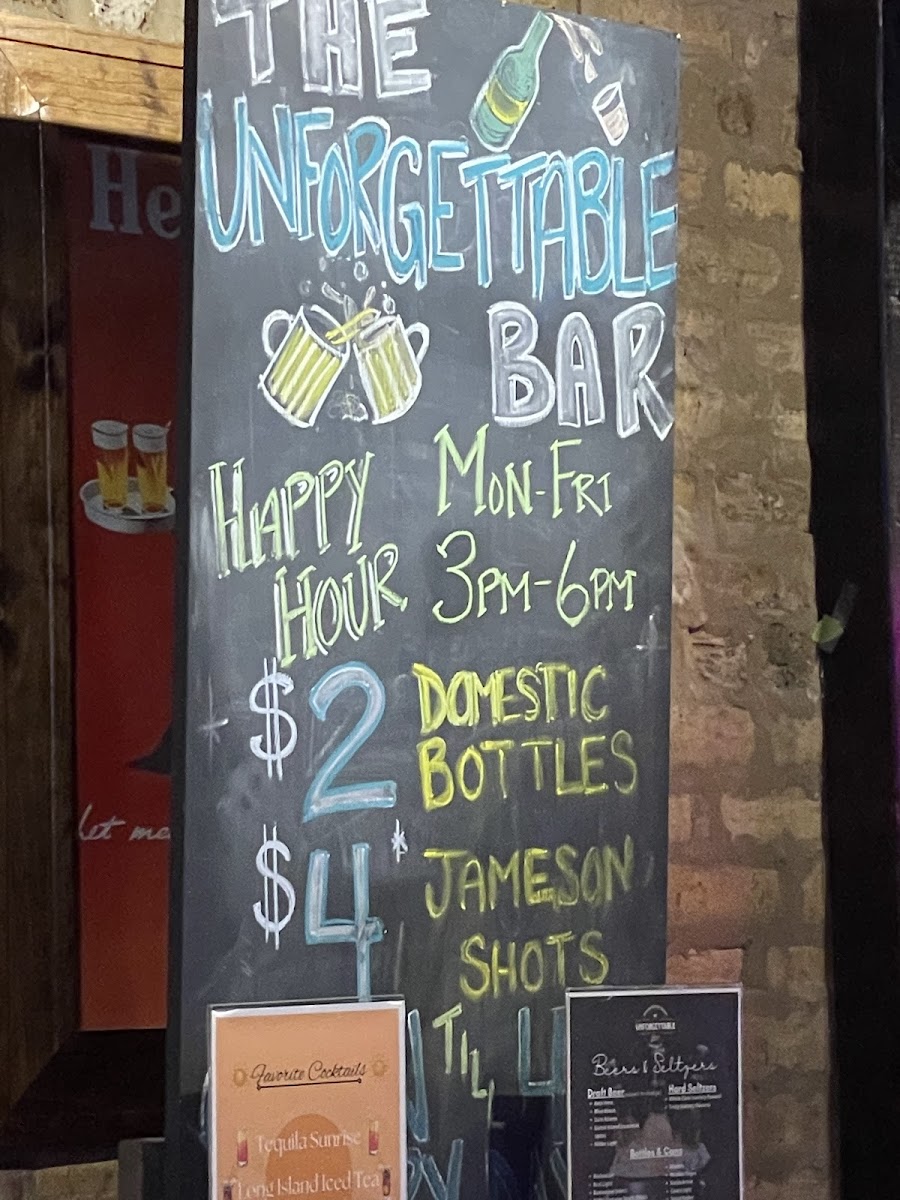 THE
UNFORGETTABLE
BAR
HAPPY HOUR
MON-FRI
3PM-6PM
$2 DOMESTIC BOTTLES
$4* JAMESON SHOTS
'TIL
He
let me
Favorite Cocktails
Tequila Sunrise
Long Island Iced Tea
UNFORGETTABLE
Beers & Seltzers
Draft Beer
Hard Seltzers
Bottles & Cans